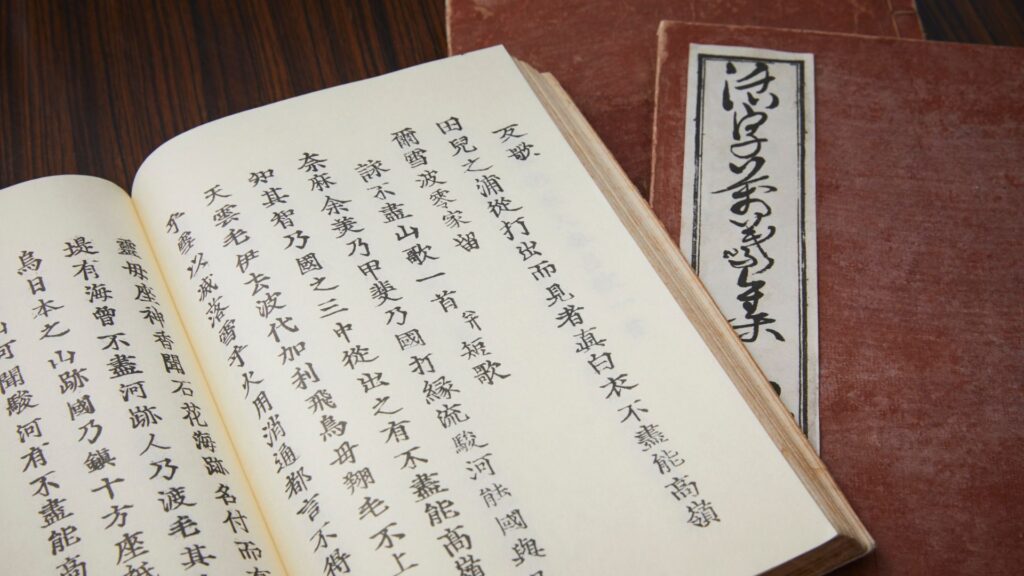 反歌
田兒之浦從打出而見者眞白衣不盡能高嶺
爾雪波零家留
詠不盡山歌一首 并短歌
奈麻余美乃甲斐乃國打縁流駿河能國與
知其智乃國之三中從出之有不盡能高嶺
天雲毛伊去波代加利飛鳥母翔毛不上
乎雪以滅落雪乎火用消通都言不得
靈母座神香聞石花海跡名付而有
堤有海曾不盡河跡人乃渡毛其
烏日本之山跡國乃鎮十方座祇
河聞駿河有不盡能高
字萬葉集